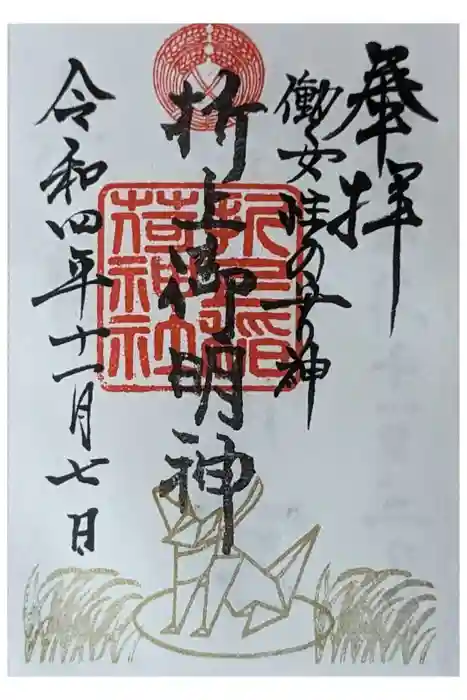 奉拝
働く女性の守り神
折上御明神
折上稲
荷神社
令和四年十一月七日